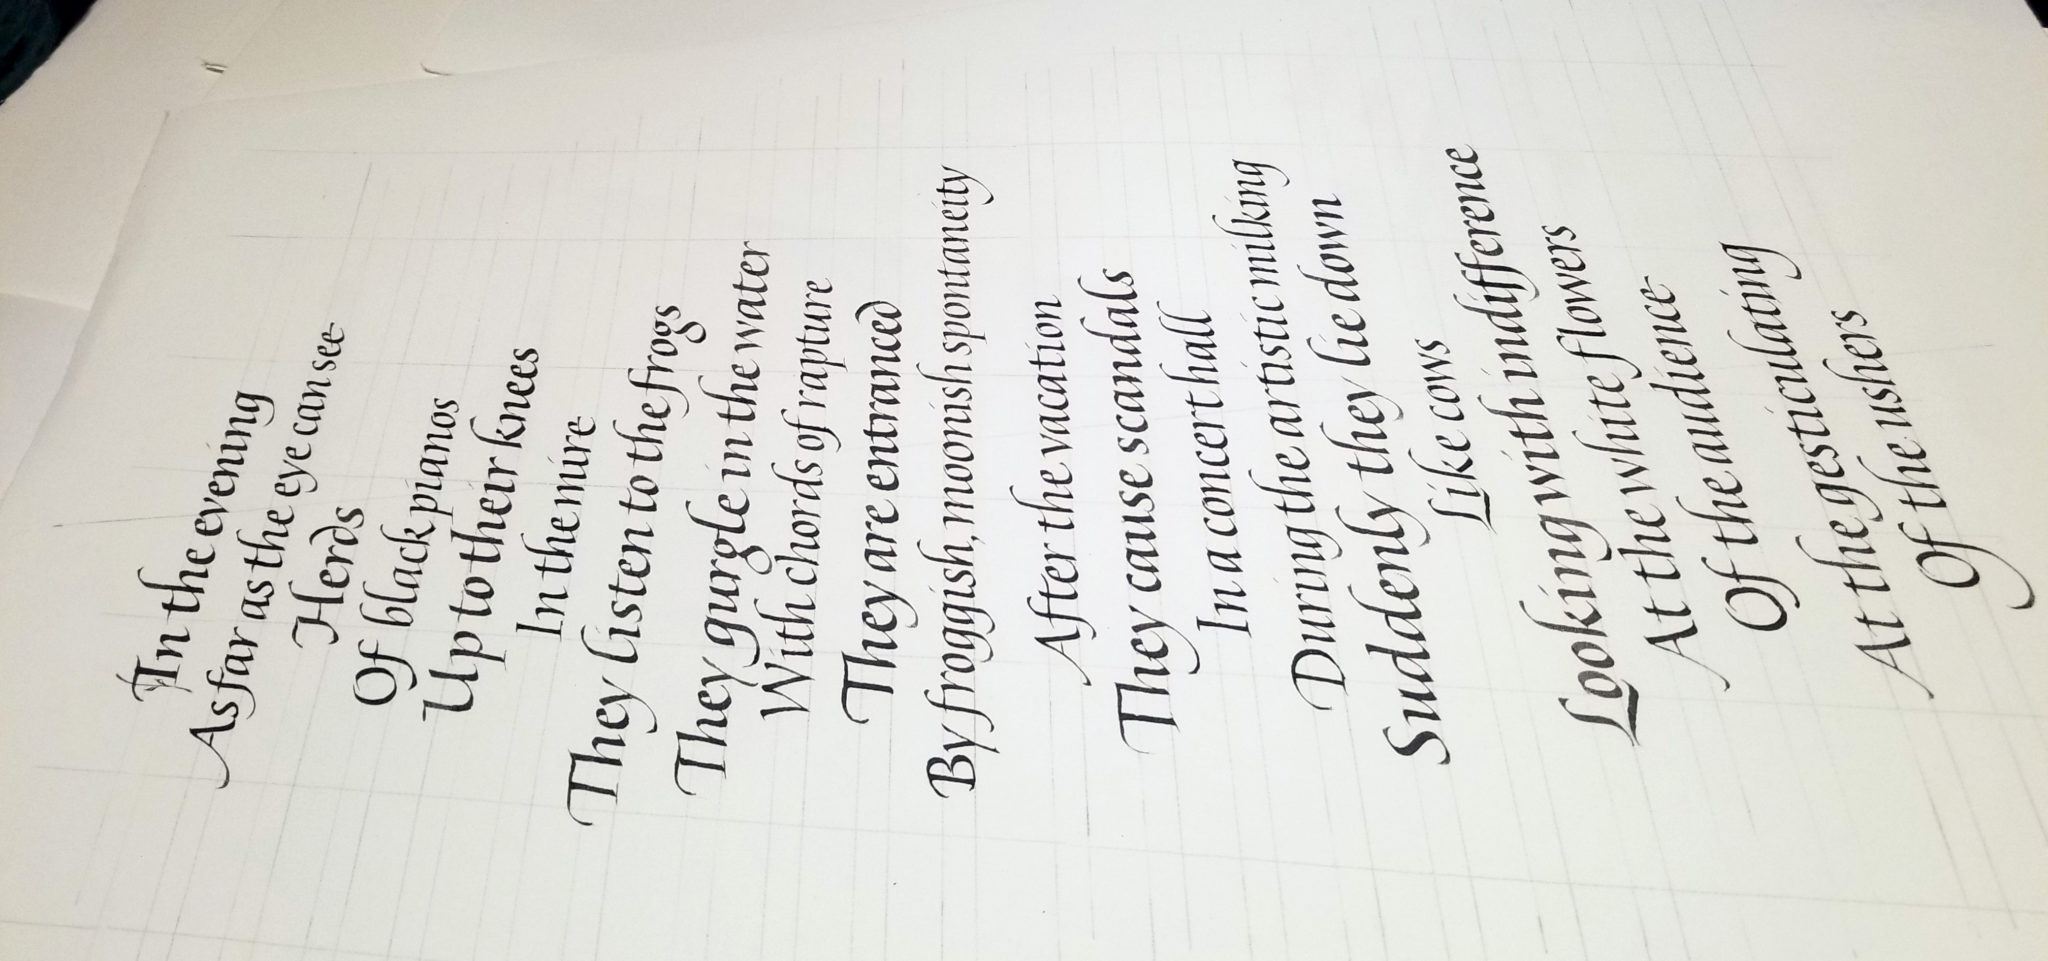 In the evening
As far as the eye can see
Herds
Of black pianos
Up to their knees
In the mire
They listen to the frogs
They gurgle in the water
With chords of rapture
They are entranced
By froggish, moonish spontaneity
After the vacation
They cause scandals
In a concert hall
During the artistic milking
Suddenly they lie down
Like cows
Looking with indifference
At the white flowers
Of the audience
At the gesticulating
Of the ushers